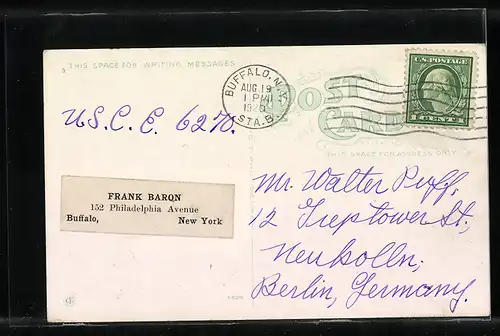 THIS SPACE FOR WRITING MESSAGES
BUFFALO, N.Y.
AUG 19
1 PM
STA. B.
U.S. POSTAGE
1 CENT 1
POST
CARD
THIS SPACE FOR ADDRESS ONLY
U.S.C.E. 6270.
FRANK BARON
152 Philadelphia Avenue
Buffalo, New York
Mr. Walter Puff,
12 Treptower St.,
Neukolln,
Berlin, Germany.